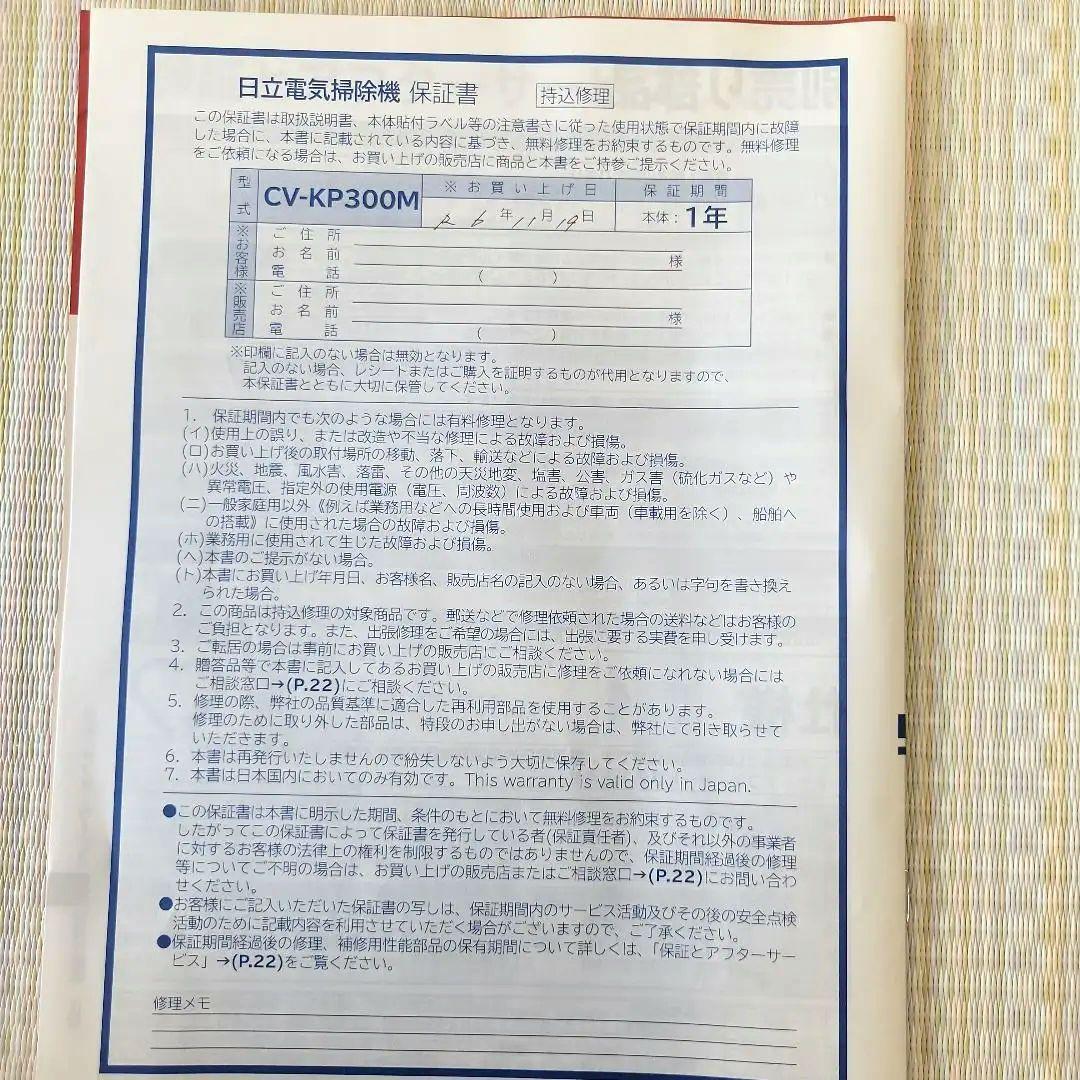 日立電気掃除機 保証書 持込修理
この保証書は取扱説明書、本体貼付ラベル等の注意書きに従った使用状態で保証期間内に故障
した場合に、本書に記載されている内容に基づき、無料修理をお約束するものです。無料修理
をご依頼になる場合は、お買い上げの販売店に商品と本書をご持参ご提示ください。
型式 CV-KP300M ※お買い上げ日 保証期間
R 6年11月19日 本体：1年
※お客様 ご住所
お名前 様
電話 ( )
※販売店 ご住所
お名前 様
電話 ( )
※印欄に記入のない場合は無効となります。
記入のない場合、レシートまたはご購入を証明するものが代用となりますので、
本保証書とともに大切に保管してください。
1. 保証期間内でも次のような場合には有料修理となります。
(イ)使用上の誤り、または改造や不当な修理による故障および損傷。
(ロ)お買い上げ後の取付場所の移動、落下、輸送などによる故障および損傷。
(ハ)火災、地震、風水害、落雷、その他の天災地変、塩害、公害、ガス害（硫化ガスなど）や
異常電圧、指定外の使用電源（電圧、周波数）による故障および損傷。
(ニ)一般家庭用以外《例えば業務用などへの長時間使用および車両（車載用を除く）、船舶へ
の搭載》に使用された場合の故障および損傷。
(ホ)業務用に使用されて生じた故障および損傷。
(ヘ)本書のご提示がない場合。
(ト)本書にお買い上げ年月日、お客様名、販売店名の記入のない場合、あるいは字句を書き換え
られた場合。
2. この商品は持込修理の対象商品です。郵送などで修理依頼された場合の送料などはお客様の
ご負担となります。また、出張修理をご希望の場合には、出張に要する実費を申し受けます。
3. ご転居の場合は事前にお買い上げの販売店にご相談ください。
4. 贈答品等で本書に記入してあるお買い上げの販売店に修理をご依頼になれない場合には
ご相談窓口→(P.22)にご相談ください。
5. 修理の際、弊社の品質基準に適合した再利用部品を使用することがあります。
修理のために取り外した部品は、特段のお申し出がない場合は、弊社にて引き取らせて
いただきます。
6. 本書は再発行いたしませんので紛失しないよう大切に保存してください。
7. 本書は日本国内においてのみ有効です。This warranty is valid only in Japan.
●この保証書は本書に明示した期間、条件のもとにおいて無料修理をお約束するものです。
したがってこの保証書によって保証書を発行している者(保証責任者)、及びそれ以外の事業者
に対するお客様の法律上の権利を制限するものではありませんので、保証期間経過後の修理
等についてご不明の場合は、お買い上げの販売店またはご相談窓口→(P.22)にお問い合わ
せください。
●お客様にご記入いただいた保証書の写しは、保証期間内のサービス活動及びその後の安全点検
活動のために記載内容を利用させていただく場合がございますので、ご了承ください。
●保証期間経過後の修理、補修用性能部品の保有期間について詳しくは、「保証とアフターサー
ビス」→(P.22)をご覧ください。
修理メモ